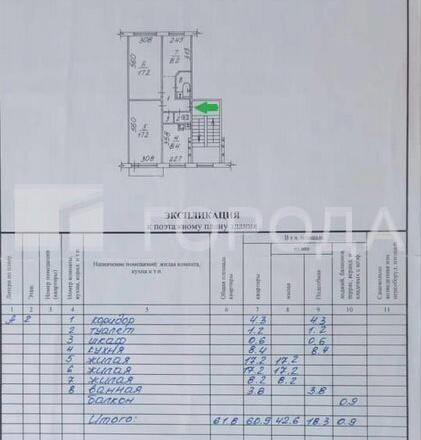 308 243
560 6 17.2 7 8.2 8
1
5 17.2 560 3 2
4 8.4
308 227
ЭКСПЛИКАЦИЯ
к поэтажному плану здания
ГОРОДА
Этаж
Назначение помещений: жилая комната, кухня и т.п.
Общая площадь квартиры
квартиры
жилая
Подсобная
1 2 3 4 5 6 7 8 9 10 11
А 2 1 коридор 4.3 4.3
2 туалет 1.2 1.2
3 шкаф 0.6 0.6
4 кухня 8.4 8.4
5 жилая 17.2 17.2
6 жилая 17.2 17.2
7 жилая 8.2 8.2
8 ванная 3.8 3.8
балкон 0.9
Итого: 61.8 60.9 42.6 18.3 0.9